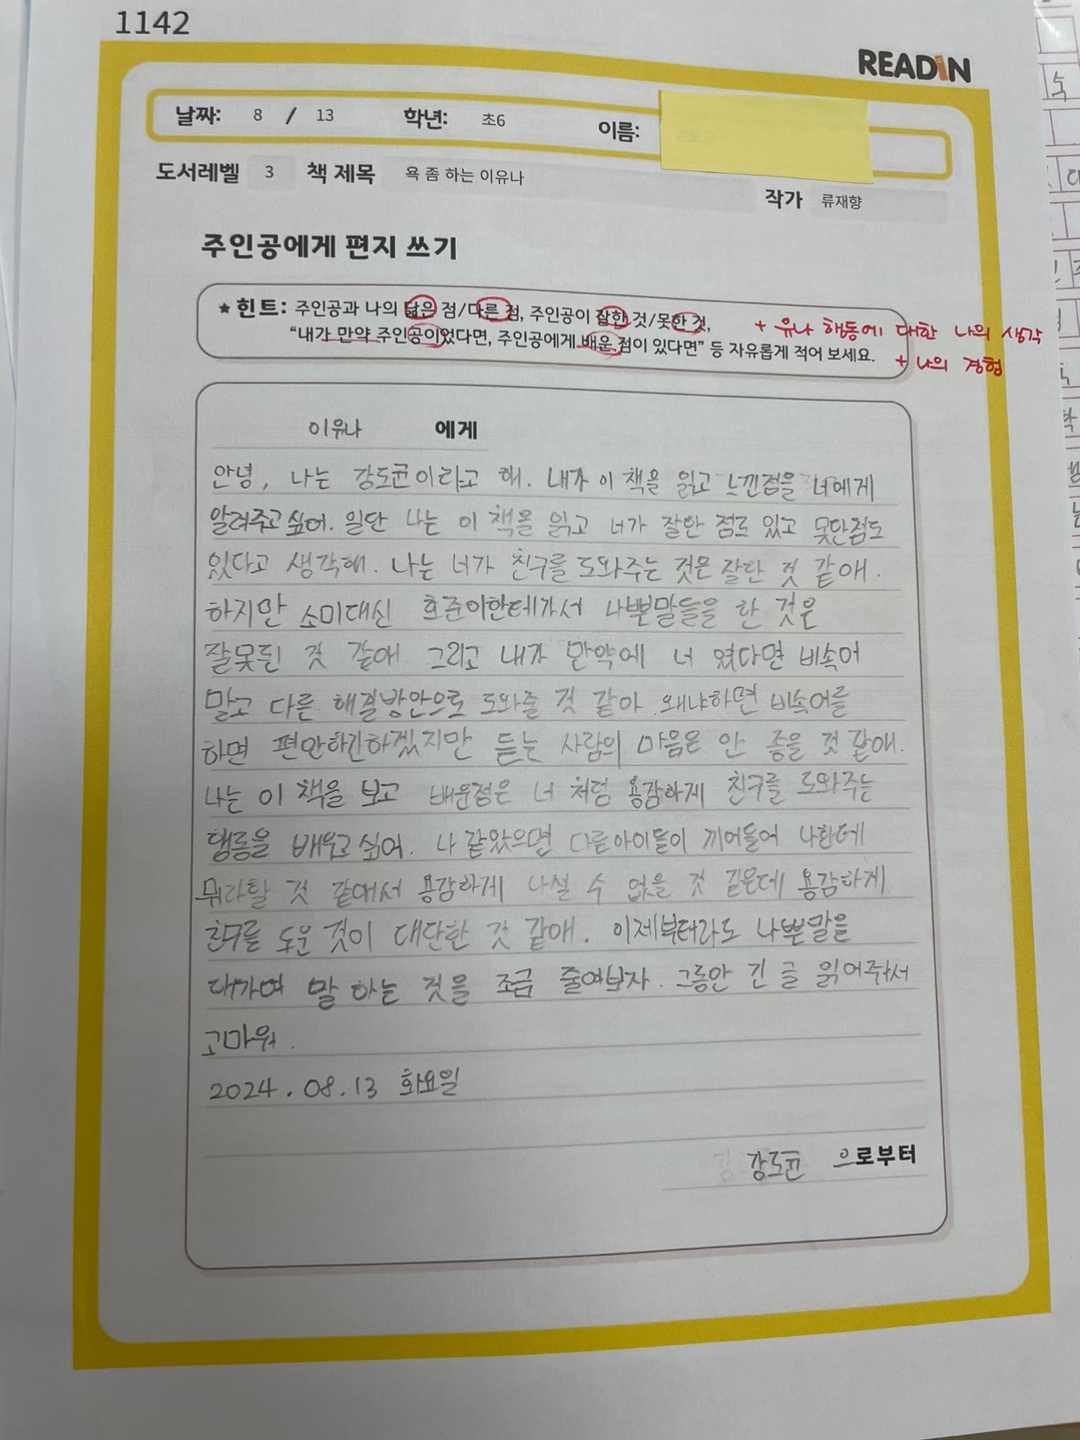 1142
READiN
날짜: 8 / 13 학년: 초6 이름:
도서레벨 3 책 제목 욕 좀 하는 이유나
작가 류재향
주인공에게 편지 쓰기
★ 힌트: 주인공과 나의 닮은 점/다른 점, 주인공이 잘한 것/못한 것,
+ 유나 행동에 대한 나의 생각
“내가 만약 주인공이었다면, 주인공에게 배운 점이 있다면” 등 자유롭게 적어 보세요.
+ 나의 경험
이유나 에게
안녕, 나는 강도균이라고 해. 내가 이 책을 읽고 느낀점을 너에게
알려주고싶어. 일단 나는 이 책을 읽고 너가 잘한 점도 있고 못한점도
있다고 생각해. 나는 너가 친구를 도와주는 것은 잘한 것 같애.
하지만 소미대신 호준이한테가서 나쁜말들을 한 것은
잘못된 것 같애. 그리고 내가 만약에 너 였다면 비속어
말고 다른 해결방안으로 도와줄 것 같아. 왜냐하면 비속어를
하면 편안하긴하겠지만 듣는 사람의 마음은 안 좋을 것 같애.
나는 이 책을 보고 배운점은 너 처럼 용감하게 친구를 도와주는
행동을 배우고싶어. 나 같았으면 다른아이들이 끼어들어 나한테
뭐라할 것 같애서 용감하게 나설 수 없을 것 같은데 용감하게
친구를 도운 것이 대단한 것 같애. 이제부터라도 나쁜말을
대가며 말 하는 것을 조금 줄여보자. 그동안 긴 글 읽어주서
고마워.
2024. 08. 13 화요일
강도균 으로부터